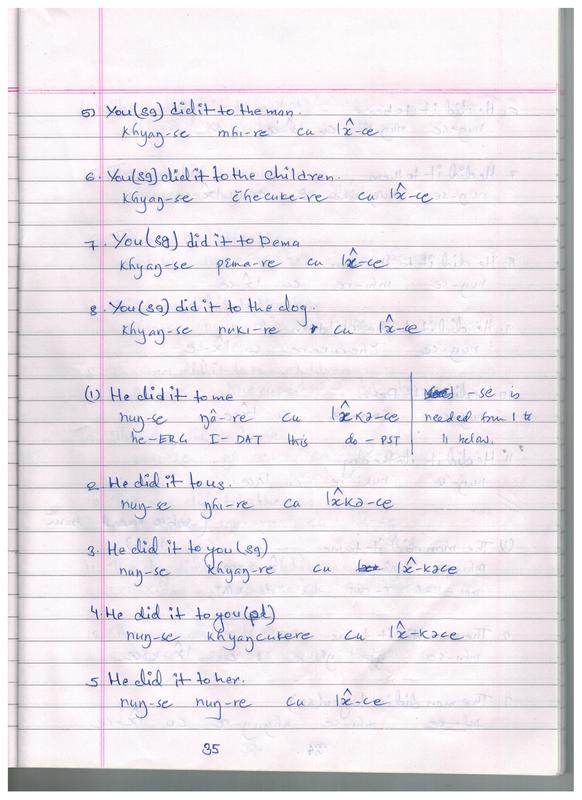 5) You(sg) did it to the man.
khyaŋ-se mhi-re cu lẫ-ce
6. You(sg) did it to the children.
khyaŋ-se čhecuke-re cu lẫ-ce
7. You(sg) did it to Pema
khyaŋ-se pema-re cu lẫ-ce
8. You(sg) did it to the dog.
khyaŋ-se nuki-re cu lẫ-ce
(1) He did it to me
nuŋ-se ŋâ-re cu lẫkə-ce
he-ERG I-DAT this do-PST
-se is
needed from 1 to
11 below.
2. He did it to us.
nuŋ-se ŋhi-re cu lẫkə-ce
3. He did it to you(sg)
nuŋ-se khyaŋ-re cu lẫ-kəce
4. He did it to you(pl)
nuŋ-se khyaŋcukere cu lẫ-kəce
5 He did it to her.
nuŋ-se nuŋ-re cu lẫ-ce
35